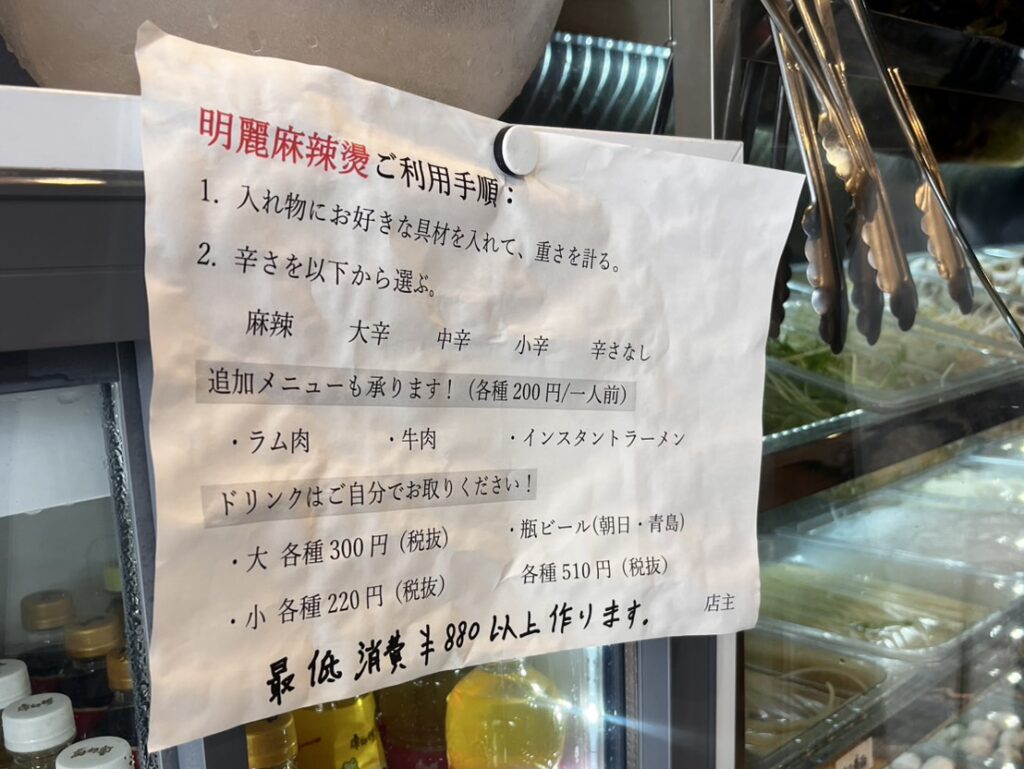 明麗麻辣燙ご利用手順：
1. 入れ物にお好きな具材を入れて、重さを計る。
2. 辛さを以下から選ぶ。
麻辣 大辛 中辛 小辛 辛さなし
追加メニューも承ります！（各種200円/一人前）
・ラム肉 ・牛肉 ・インスタントラーメン
ドリンクはご自分でお取りください！
・大 各種300円（税抜）
・小 各種220円（税抜）
・瓶ビール(朝日・青島)
各種510円（税抜）
店主
最低消費¥880以上作ります.